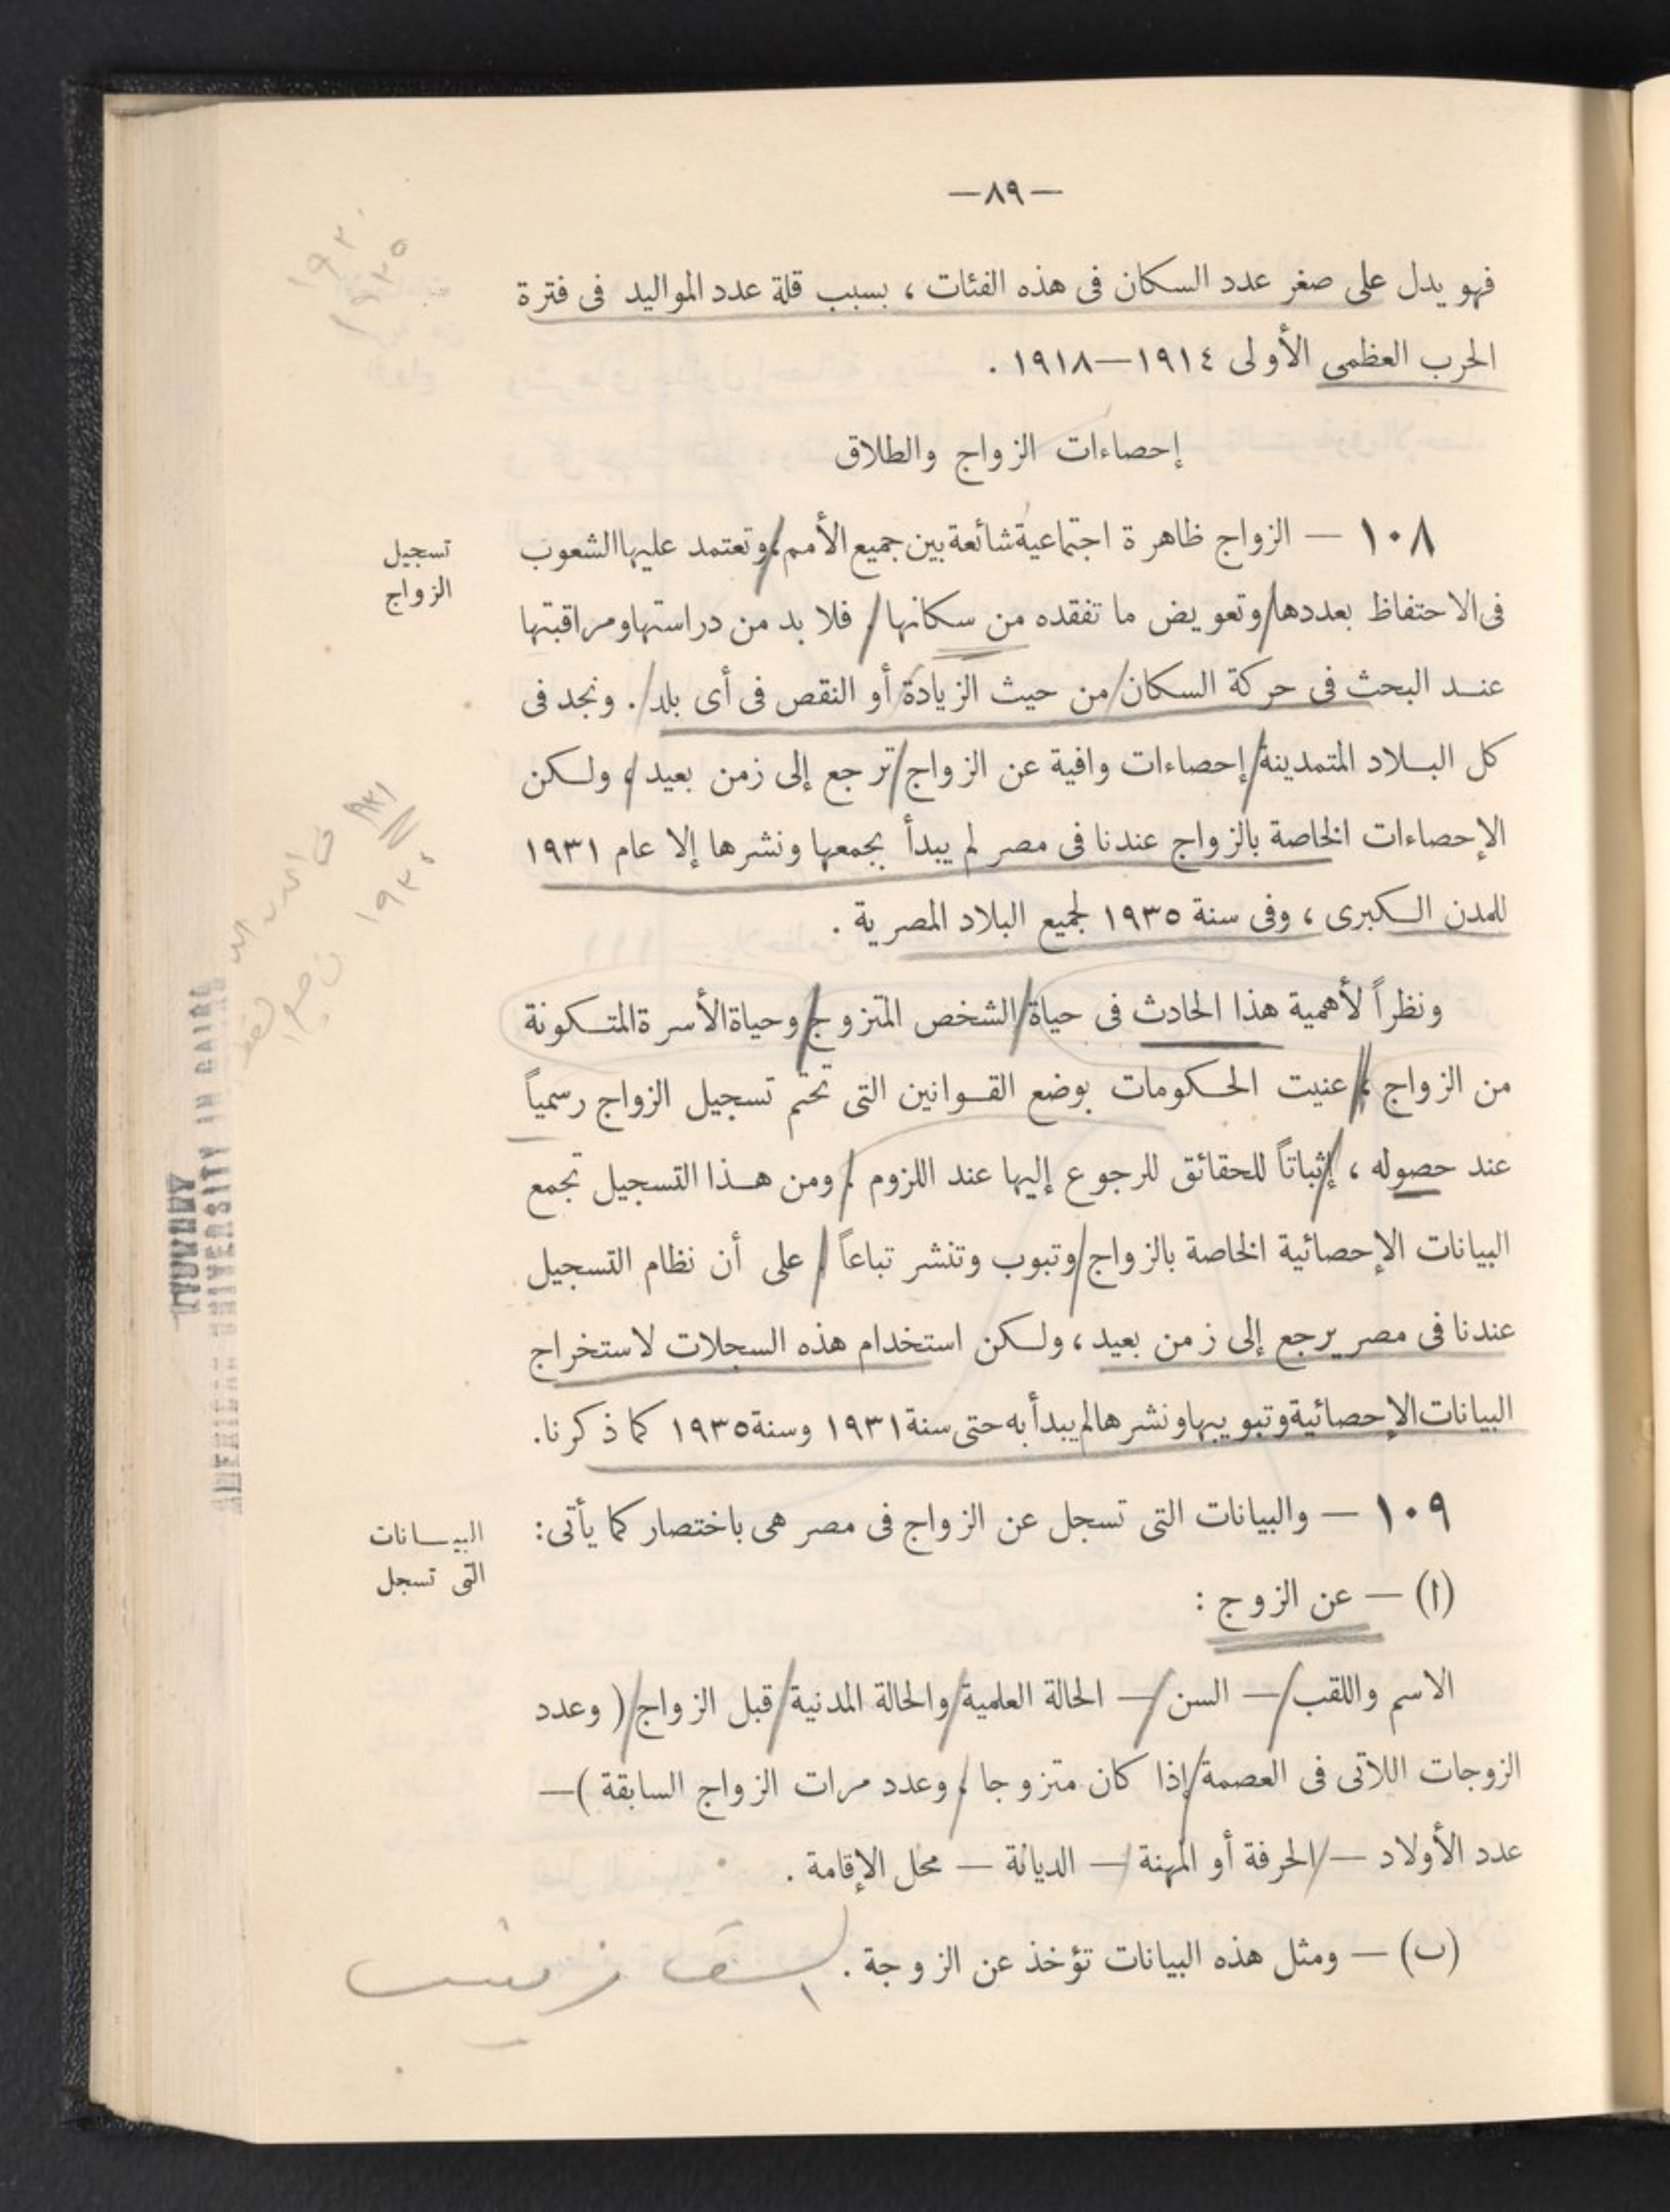 —٨٩—
فهو يدل على صغر عدد السكان فى هذه الفئات ، بسبب قلة عدد المواليد فى فترة
الحرب العظمى الأولى ١٩١٤—١٩١٨ .
إحصاءات الزواج والطلاق
تسجيل
الزواج
١٠٨ — الزواج ظاهرة اجتماعية شائعة بين جميع الأمم ، وتعتمد عليها الشعوب
فى الاحتفاظ بعددها وتعويض ما تفقده من سكانها ، فلا بد من دراستها ومراقبتها
عند البحث فى حركة السكان من حيث الزيادة أو النقص فى أى بلد . ونجد فى
كل البلاد المتمدينة إحصاءات وافية عن الزواج ترجع إلى زمن بعيد ، ولكن
الإحصاءات الخاصة بالزواج عندنا فى مصر لم يبدأ بجمعها ونشرها إلا عام ١٩٣١
للمدن الكبرى ، وفى سنة ١٩٣٥ لجميع البلاد المصرية .
ونظراً لأهمية هذا الحادث فى حياة الشخص المتزوج وحياة الأسرة المتكونة
من الزواج ، عنيت الحكومات بوضع القوانين التى تحتم تسجيل الزواج رسمياً
عند حصوله ، إثباتاً للحقائق للرجوع إليها عند اللزوم . ومن هذا التسجيل تجمع
البيانات الإحصائية الخاصة بالزواج وتبوب وتنشر تباعاً . على أن نظام التسجيل
عندنا فى مصر يرجع إلى زمن بعيد ، ولكن استخدام هذه السجلات لاستخراج
البيانات الإحصائية وتبويبها ونشرها لم يبدأ به حتى سنة ١٩٣١ وسنة ١٩٣٥ كما ذكرنا.
البيانات
التى تسجل
١٠٩ — والبيانات التى تسجل عن الزواج فى مصر هى باختصار كما يأتى:
(ا) — عن الزوج :
الاسم واللقب — السن — الحالة العلمية والحالة المدنية قبل الزواج ( وعدد
الزوجات اللاتى فى العصمة إذا كان متزوجا ، وعدد مرات الزواج السابقة )—
عدد الأولاد — الحرفة أو المهنة — الديانة — محل الإقامة .
(ب) — ومثل هذه البيانات تؤخذ عن الزوجة .
AMERICAN UNIVERSITY IN CAIRO
LIBRARY